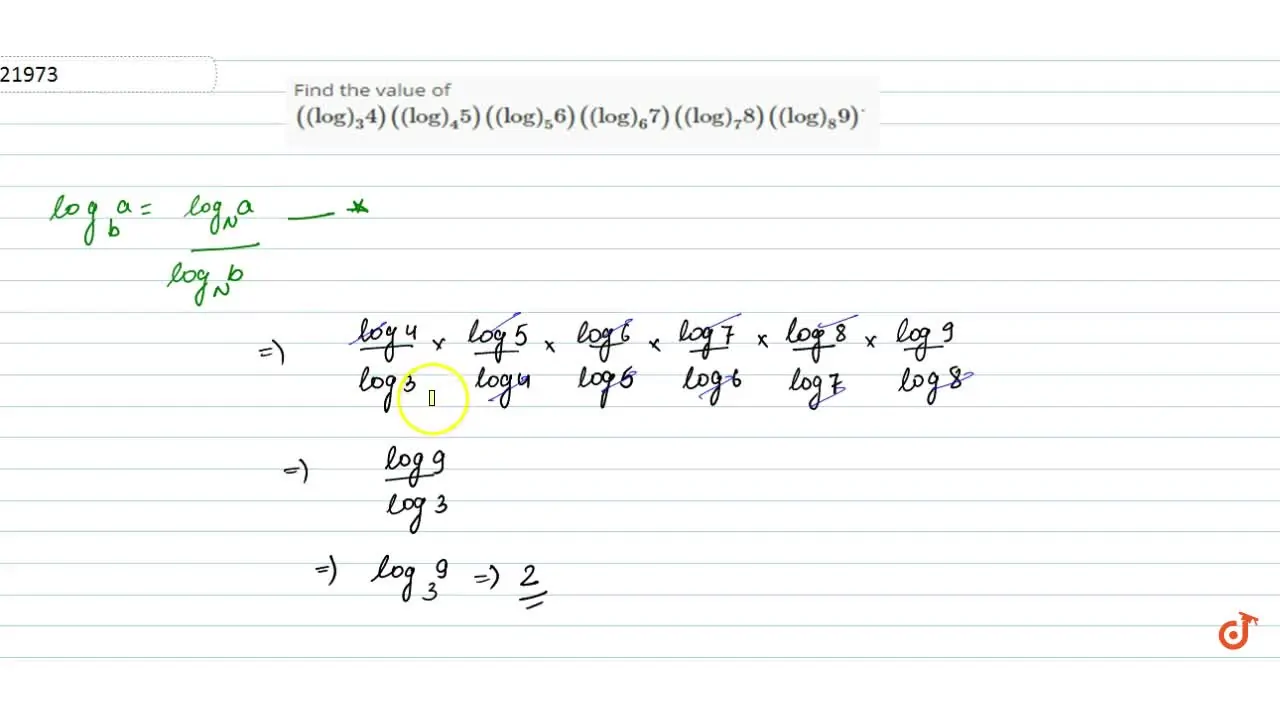 21973
Find the value of
((log)₃4)((log)₄5)((log)₅6)((log)₆7)((log)₇8)((log)₈9)·
log_b a = log_N a / log_N b — *
=) log 4 / log 3 × log 5 / log 4 × log 6 / log 5 × log 7 / log 6 × log 8 / log 7 × log 9 / log 8
=) log 9 / log 3
=) log₃ 9 =) 2